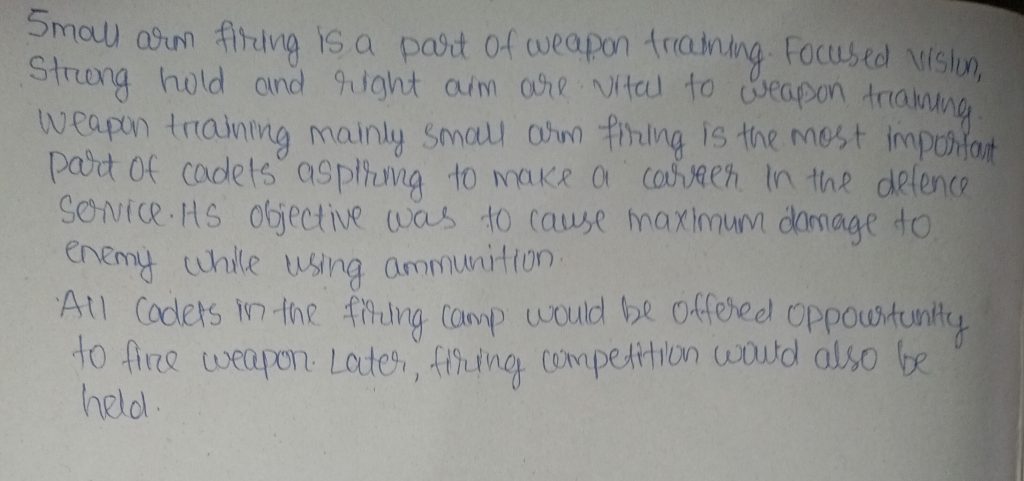 Small arm firing is a part of weapon training. Focused vision,
Strong hold and right aim are vital to weapon training.
Weapon training mainly small arm firing is the most important
part of cadets aspiring to make a career in the defence
service. Its objective was to cause maximum damage to
enemy while using ammunition.
All Cadets in the firing camp would be offered oppourtunity
to fire weapon. Later, firing competition would also be
held.